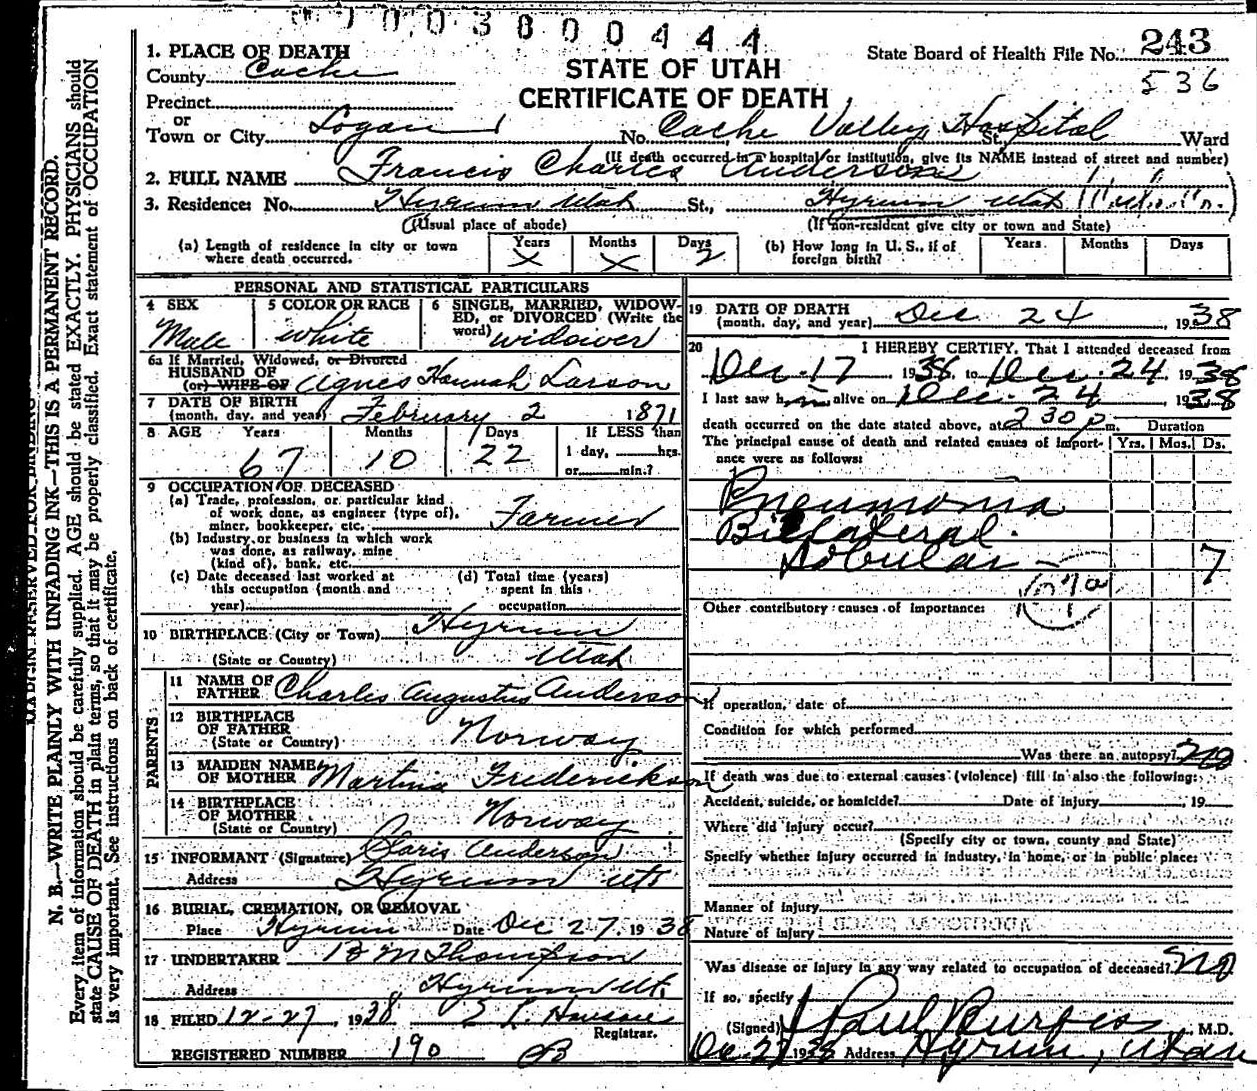 0 7 0 0 3 8 0 0 4 4 4
1. PLACE OF DEATH
County Cache
State Board of Health File No. 243
536
STATE OF UTAH
CERTIFICATE OF DEATH
Precinct
or
Town or City Logan No. Cache Valley Hospital St., Ward
(If death occurred in a hospital or institution, give its NAME instead of street and number)
2. FULL NAME Francis Charles Anderson
3. Residence: No. Hyrum Utah St., Hyrum Utah
(Usual place of abode) (If non-resident give city or town and State)
(a) Length of residence in city or town where death occurred. Years X Months X Days 2
(b) How long in U. S., if of foreign birth? Years Months Days
PERSONAL AND STATISTICAL PARTICULARS
4 SEX Male
5 COLOR OR RACE White
6 SINGLE, MARRIED, WIDOWED, or DIVORCED (Write the word) widower
6a If Married, Widowed, or Divorced
HUSBAND OF
(or) WIFE OF Agnes Hannah Larson
7 DATE OF BIRTH
(month, day, and year) February 2 1871
8 AGE Years 67 Months 10 Days 22 If LESS than 1 day, hrs. or min.?
9 OCCUPATION OF DECEASED
(a) Trade, profession, or particular kind
of work done, as engineer (type of),
miner, bookkeeper, etc. Farmer
(b) Industry or business in which work
was done, as railway, mine
(kind of), bank, etc.
(c) Date deceased last worked at
this occupation (month and
year)
(d) Total time (years)
spent in this
occupation
10 BIRTHPLACE (City or Town) Hyrum
(State or Country) Utah
PARENTS
11 NAME OF
FATHER Charles Augustus Anderson
12 BIRTHPLACE
OF FATHER
(State or Country) Norway
13 MAIDEN NAME
OF MOTHER Martina Frederickson
14 BIRTHPLACE
OF MOTHER
(State or Country) Norway
15 INFORMANT (Signature) Claris Anderson
Address Hyrum Ut.
16 BURIAL, CREMATION, OR REMOVAL
Place Hyrum Date Dec 27, 1938
17 UNDERTAKER B M Thompson
Address Hyrum Ut.
18 FILED 12-27, 1938
Registrar.
REGISTERED NUMBER 190
19 DATE OF DEATH
(month, day, and year) Dec 24, 1938
20 I HEREBY CERTIFY, That I attended deceased from
Dec. 17 1938, to Dec. 24 1938
I last saw him alive on Dec. 24 1938
death occurred on the date stated above, at 2 30 p m. Duration
The principal cause of death and related causes of importance were as follows: Yrs. Mos. Ds.
Pneumonia
Bilateral.
Lobular - 7
107a
Other contributory causes of importance:
If operation, date of
Condition for which performed
Was there an autopsy? no
If death was due to external causes (violence) fill in also the following:
Accident, suicide, or homicide? Date of injury , 19
Where did injury occur?
(Specify city or town, county and State)
Specify whether injury occurred in industry, in home, or in public place:
Manner of injury
Nature of injury
Was disease or injury in any way related to occupation of deceased? no
If so, specify
(Signed) J Paul Burgess, M.D.
Dec. 27, 1938 Address Hyrum, Utah
N. B.—WRITE PLAINLY WITH UNFADING INK—THIS IS A PERMANENT RECORD.
Every item of information should be carefully supplied. AGE should be stated EXACTLY. PHYSICIANS should
state CAUSE OF DEATH in plain terms, so that it may be properly classified. Exact statement of OCCUPATION
is very important. See instructions on back of certificate.
MARGIN RESERVED FOR BINDING